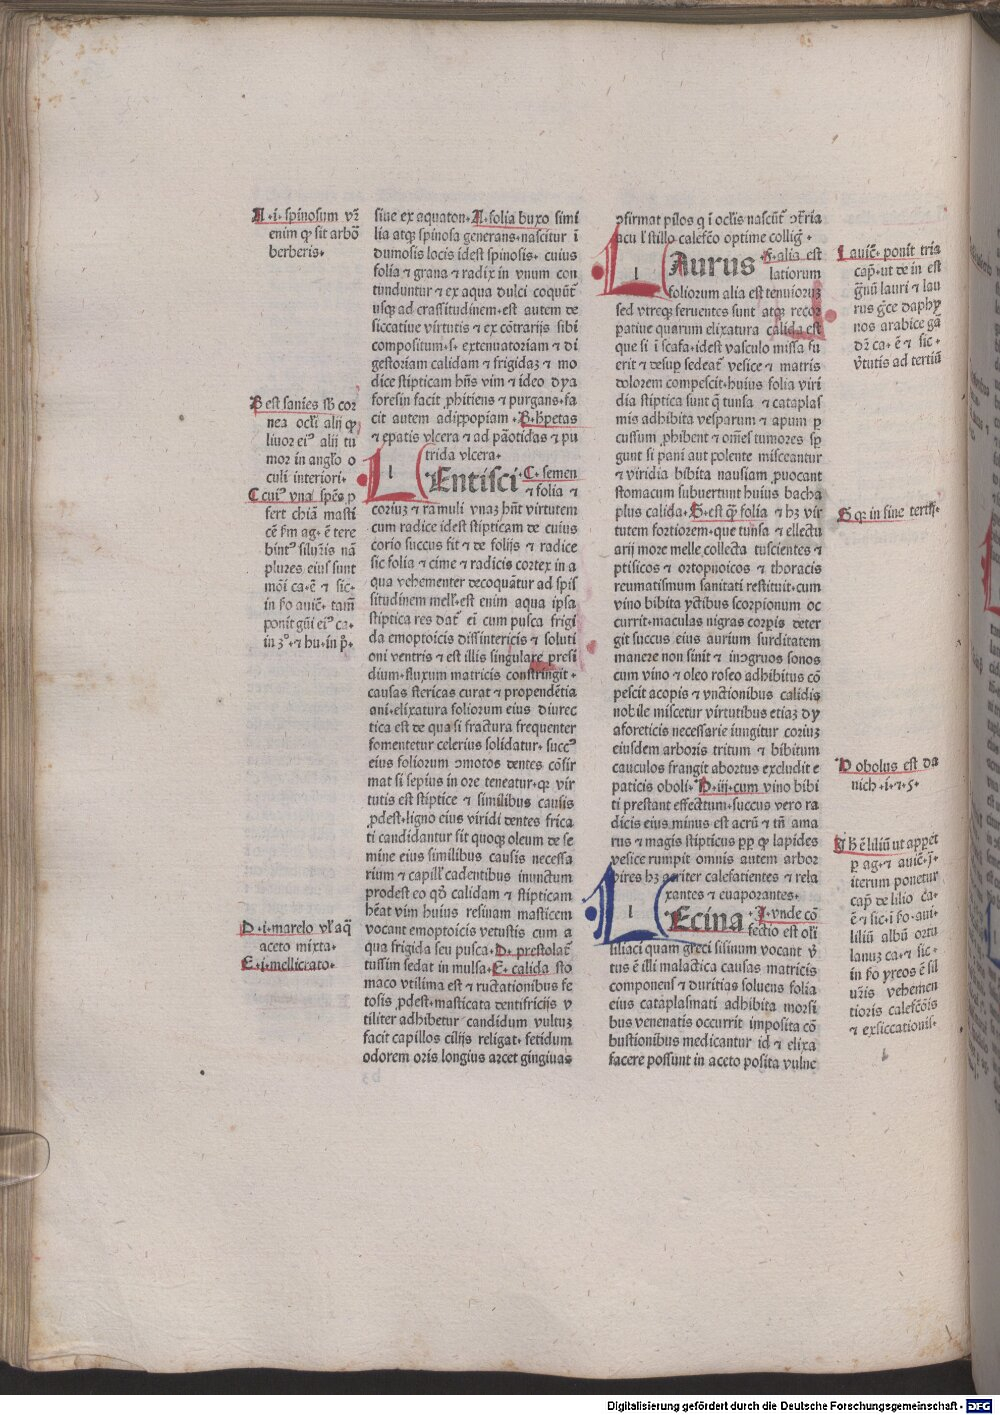 A·i·spinosum vr̃
enim ꝙ sit arbõ
berberis·
B est sanies sb cor
nea oc͡li alij ꝙ
liuor eiꝰ alij tu
mor in angl̃o o
culi interiori·
C cuiꝰ vna spẽs ꝓ
fert chiã masti
cẽ fm ag· ẽ tere
bintꝰ siluris nã
plures eiꝰ sunt
mõi ca·ẽ ⁊ sic·
in fo auic̃· tam̃
ponit gũi eiꝰ ca·
in 3°·⁊ hu·in p̃·
D·i·marelo vl̃ aq̃
aceto mixta·
E·i·mellicrato·
siue ex aquaton· A·folia buxo simi
lia atqꝫ spinosa generans·nascitur ĩ
dumosis locis idest spinosis· cuius
folia ⁊ grana ⁊ radix in vnum con
tunduntur ⁊ ex aqua dulci coqunt̃
usqꝫ ad crassitudinem·est autem de
siccatiue virtutis ⁊ ex cõtrarijs sibi
compositum·s· extenuatoriam ⁊ di
gestoriam calidam ⁊ frigidaꝫ ⁊ mo
dice stipticam hñs vim ⁊ ideo dya
foresin facit ꝓhitiens ⁊ purgans·fa
cit autem adip̃ropiam· B·hp̃etas
⁊ epatis vlcera ⁊ ad pãotidas ⁊ pu
trida vlcera·
LEntisci· C· semen
⁊ folia ⁊
coriuꝫ ⁊ ramuli vnaꝫ hñt virtutem
cum radice idest stipticam de cuius
corio succus fit ⁊ de folijs ⁊ radice
sic folia ⁊ cime ⁊ radicis cortex in a
qua vehementer decoquãtur ad spis
situdinem mell̃·est enim aqua ipsa
stiptica res dat̃ ei cum pusca frigi
da emoptoicis dissintericis ⁊ soluti
oni ventris ⁊ est illis singulare presi
dium·fluxum matricis constringit·
causas stericas curat ⁊ propendẽtia
ani·elixatura foliorum eius diurec
tica est de qua si fractura frequenter
fomentetur celerius solidatur· succꝰ
eius foliorum ɔmotos dentes cõfir
mat si sepius in ore teneatur·ꝙ vir
tutis est stiptice ⁊ similibus causis
ꝓdest·ligno eius viridi dentes frica
ti candidantur fit quoqꝫ oleum de se
mine eius similibus causis necessa
rium ⁊ capill̃ cadentibus inunctum
prodest eo qđ calidam ⁊ stipticam
hẽat vim huius resinam masticem
vocant emoptoicis vetustis cum a
qua frigida seu pusca· D· prestolat̃
tussim sedat in mulsa· E· calida sto
maco vtilima est ⁊ ructationibus fe
tosis ꝓdest·masticata dentifricijs v
tiliter adhibetur candidum vultuꝫ
facit capillos cilijs religat· fetidum
odorem oris longius arcet gingiuas
ɔfirmat pilos q i oc͡lis nascũt̃ ɔt̃ria
acu l̃ stillo calefc̃o optime collig̃·
LAurus· F·alia est
latiorum
foliorum alia est tenuioruꝫ
sed vtreqꝫ feruentes sunt atqꝫ recor
patiue quarum elixatura calida est
que si i scafa·idest vasculo missa fu
erit ⁊ desup sedeat̃ vesice ⁊ matris
dolorem compescit·huius folia viri
dia stiptica sunt q̃ tunsa ⁊ cataplas
mis adhibita vesparum ⁊ apum ꝑ
cussum ꝓhibent ⁊ om̃es tumores sꝑ
gunt si pani aut polente misceantur
⁊ viridia bibita nausiam ꝓuocant
stomacum subuertunt huius bacha
plus calida· G·est q̃ folia ⁊ hꝫ vir
tutem fortiorem·que tunsa ⁊ ellectu
arij more melle collecta tuscientes ⁊
ptisicos ⁊ ortopnoicos ⁊ thoracis
reumatismum sanitati restituit·cum
vino bibita yctibus scorpionum oc
currit·maculas nigras corꝑis deter
git succus eius aurium surditatem
manere non sinit ⁊ inɔgruos sonos
cum vino ⁊ oleo roseo adhibitus cõ
pescit acopis ⁊ vnctionibus calidis
nobile miscetur virtutibus etiaꝫ dy
aforeticis necessarie iungitur coriuꝫ
eiusdem arboris tritum ⁊ bibitum
cauculos frangit abortus excludit e
paticis oboli· D·iij·cum vino bibi
ti prestant effectum·succus vero ra
dicis eius minus est acrũ ⁊ tñ ama
rus ⁊ magis stipticus ꝓp ꝙ lapides
vesice rumpit omnis autem arbor
vires hꝫ acriter calefatientes ⁊ rela
xantes ⁊ euaporantes·
LEcina· I·vnde cõ
fectio est olĩ
liliaci quam greci sisinum vocant v̾
tus ẽ illi malactica causas matricis
componens ⁊ duritias soluens folia
eius cataplasmati adhibita morsi
bus venenatis occurrit imposita cõ
bustionibus medicantur id ⁊ elixa
facere possunt in aceto posita vulne
L auic̃· ponit tria
cap̃·ut de in est
g̃nũ lauri ⁊ lau
rus gce daphy
nos arabice gã
dr̃ ca· ẽ ⁊ sic·
v̾tutis ad tertiũ
G qr in fine tertij·
D obolus est da
nich·i·⁊·5·
I hẽ liliũ ut appet
ꝑ ag·⁊ auic̃·j̃·
iterum ponetur
cap̃ de lilio ca·
ẽ ⁊ sic·i fo·aui·
liliũ albũ ozui
lanuꝫ ca·⁊ sic·
in fo yreos ẽ sil
uris vehemen
tioris calefc̃õis
⁊ exsiccationis·
Digitalisierung gefördert durch die Deutsche Forschungsgemeinschaft - DFG